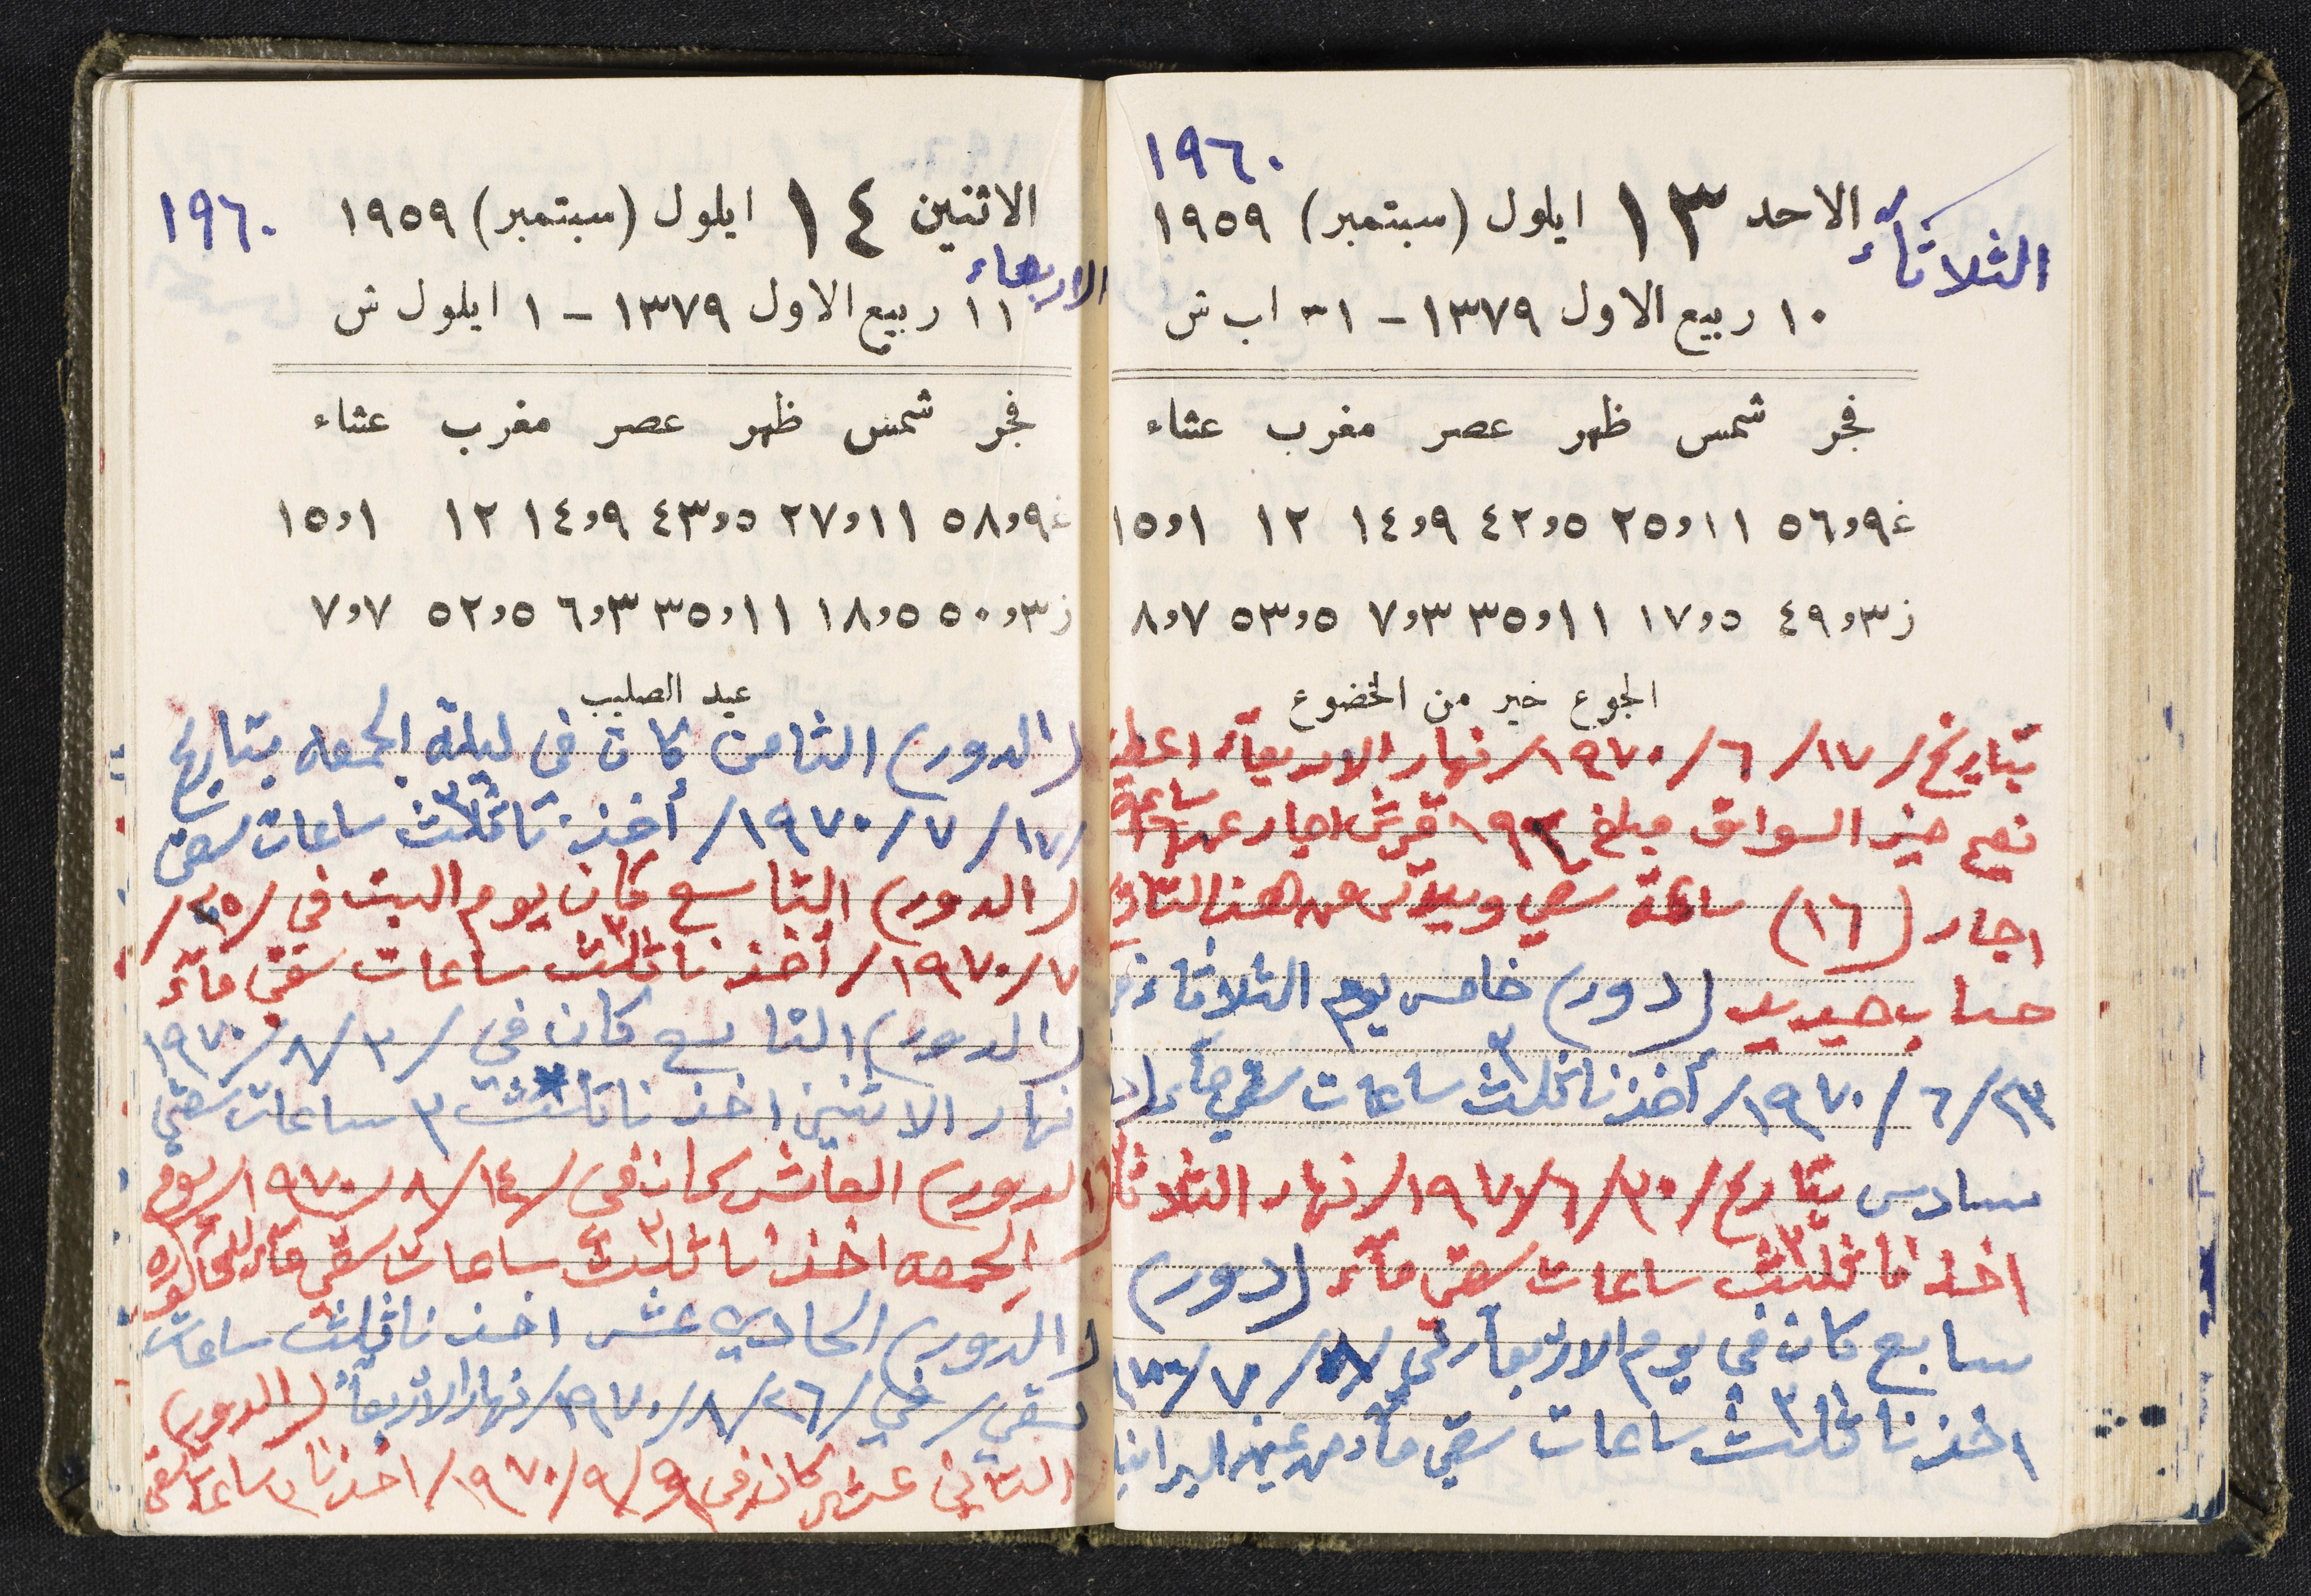 ١٩٦٠
الثلاثاء
الاحد ١٣ ايلول (سبتمبر) ١٩٥٩
١٠ ربيع الاول ١٣٧٩ – ٣١ اب ش
فجر شمس ظهر عصر مغرب عشاء
غ ٩و٥٦ ١١و٢٥ ٥و٤٢ ٩و١٤ ١٢ ١و١٥
ز ٣و٤٩ ٥و١٧ ١١و٣٥ ٣و٧ ٥و٥٣ ٧و٨
الجوع خير من الخضوع
بتاريخ/ ١٧/ ٦/ ١٩٧٠/ نهار الاربعاء
السواق مبلغ قرش اجار عن ساعة
اجار (١٦) ساعة سقي هذا
حساب جديد (دور) خامس يوم الثلاثاء في
٢٣/ ٦/ ١٩٧٠/ أخذنا ثلث ٣ ساعات سقي مآء
سادس بتاريخ/ ٣٠/ ٦/ ١٩٧٠/ نهار الثلاثاء
اخذنا ثلث ٣ ساعات سقي مآء (دور)
سابع كان في يوم الاربعآء في
اخذنا ثلث ٣ ساعات سقي مآء من
١٩٦٠
الاثنين ١٤ ايلول (سبتمبر) ١٩٥٩
الاربعاء
١١ ربيع الاول ١٣٧٩ – ١ ايلول ش
فجر شمس ظهر عصر مغرب عشاء
غ ٩و٥٨ ١١و٢٧ ٥و٤٣ ٩و١٤ ١٢ ١و١٥
ز ٣و٥٠ ٥و١٨ ١١و٣٥ ٣و٦ ٥و٥٢ ٧و٧
عيد الصليب
(الدور) الثامن كان في ليلة الجمعه بتاريخ
/١٧/ ٧/ ١٩٧٠/ أخذنا ثلث ٣ ساعات سقي
(الدور) التاسع كان يوم السبت في /٢٥/
٧/ ١٩٧٠/ أخذنا ثلث ٣ ساعات سقي مآء
(الدور) التاسع كان في /٣/ ٨/ ١٩٧٠
نهار الاثنين اخذنا ٣ ساعات سقي
(الدور) العاشر كان في /١٤/ ٨/ ١٩٧٠/ يوم
الجمعه اخذنا ثلث ٣ ساعات سقي مآء
(الدور) الحادي عشر اخذنا ثلث ساعات
سقي في /٢٦/ ٨/ ١٩٧٠/ نهار الاربعآء (الدور)
الثاني عشر كان في ٩/ ٩/ ١٩٧٠/ اخذنا ٣ ساعات سقي